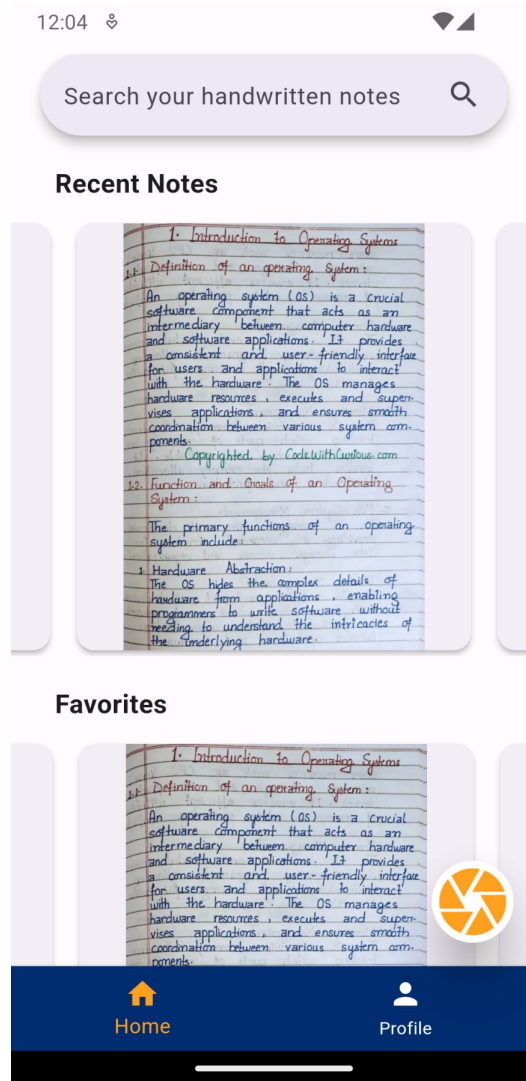 12:04
Search your handwritten notes
Recent Notes
1. Introduction to Operating Systems
1.1 Definition of an operating System :
An operating system (OS) is a crucial
software component that acts as an
intermediary between computer hardware
and software applications. It provides
a consistent and user-friendly interface
for users and applications to interact
with the hardware. The OS manages
hardware resources, executes and super-
vises applications, and ensures smooth
coordination between various system com-
ponents.
Copyrighted by CodeWithCurious.com
1.2. Function and Goals of an Operating
System :
The primary functions of an operating
system include:
1. Hardware Abstraction:
The OS hides the complex details of
hardware from applications, enabling
programmers to write software without
needing to understand the intricacies of
the underlying hardware.
Favorites
1. Introduction to Operating Systems
1.1 Definition of an operating System :
An operating system (OS) is a crucial
software component that acts as an
intermediary between computer hardware
and software applications. It provides
a consistent and user-friendly interface
for users and applications to interact
with the hardware. The OS manages
hardware resources, executes and super-
vises applications, and ensures smooth
coordination between various system com-
ponents.
Home
Profile